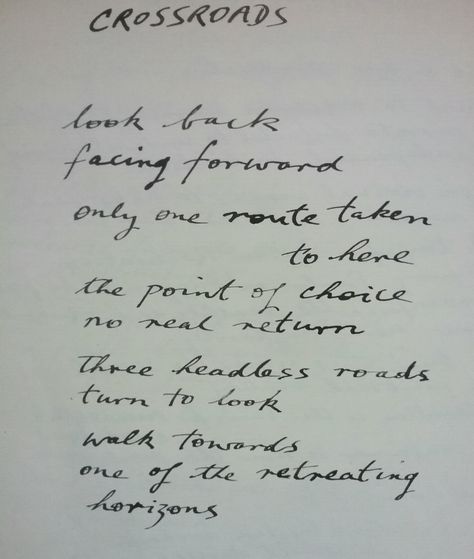 CROSSROADS
look back
facing forward
only one route taken
to here
the point of choice
no real return
three headless roads
turn to look
walk towards
one of the retreating
horizons